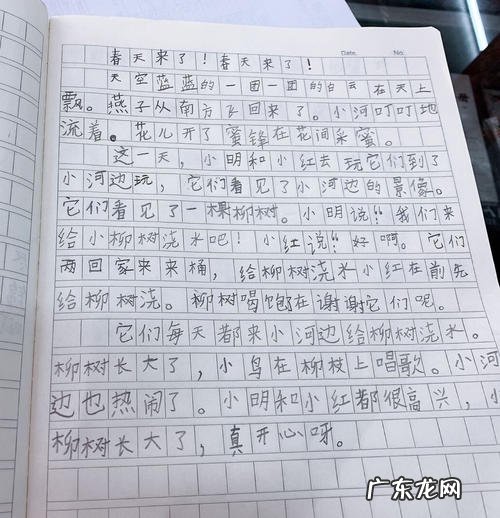 Date. No.
春天来了！春天来了！
天空蓝蓝的一团一团的白云在天上
飘。燕子从南方飞回来了。小河叮叮地
流着。花儿开了蜜锋在花间采蜜。
这一天，小明和小红去玩它们到了
小河边玩，它们看见了小河边的景像。
它们看见了一棵柳树。小明说！"我们来
给小柳树浇水吧！小红说！"好啊。它们
两回家来来桶，给柳树浇水小红在前先
给柳树浇。柳树喝饱在谢谢它们呢。
它们每天都来小河边给柳树浇水。
柳树长大了，小鸟在柳枝上唱歌。小河
边也热闹了。小明和小红都很高兴，小
柳树长大了，真开心呀。
广东龙网